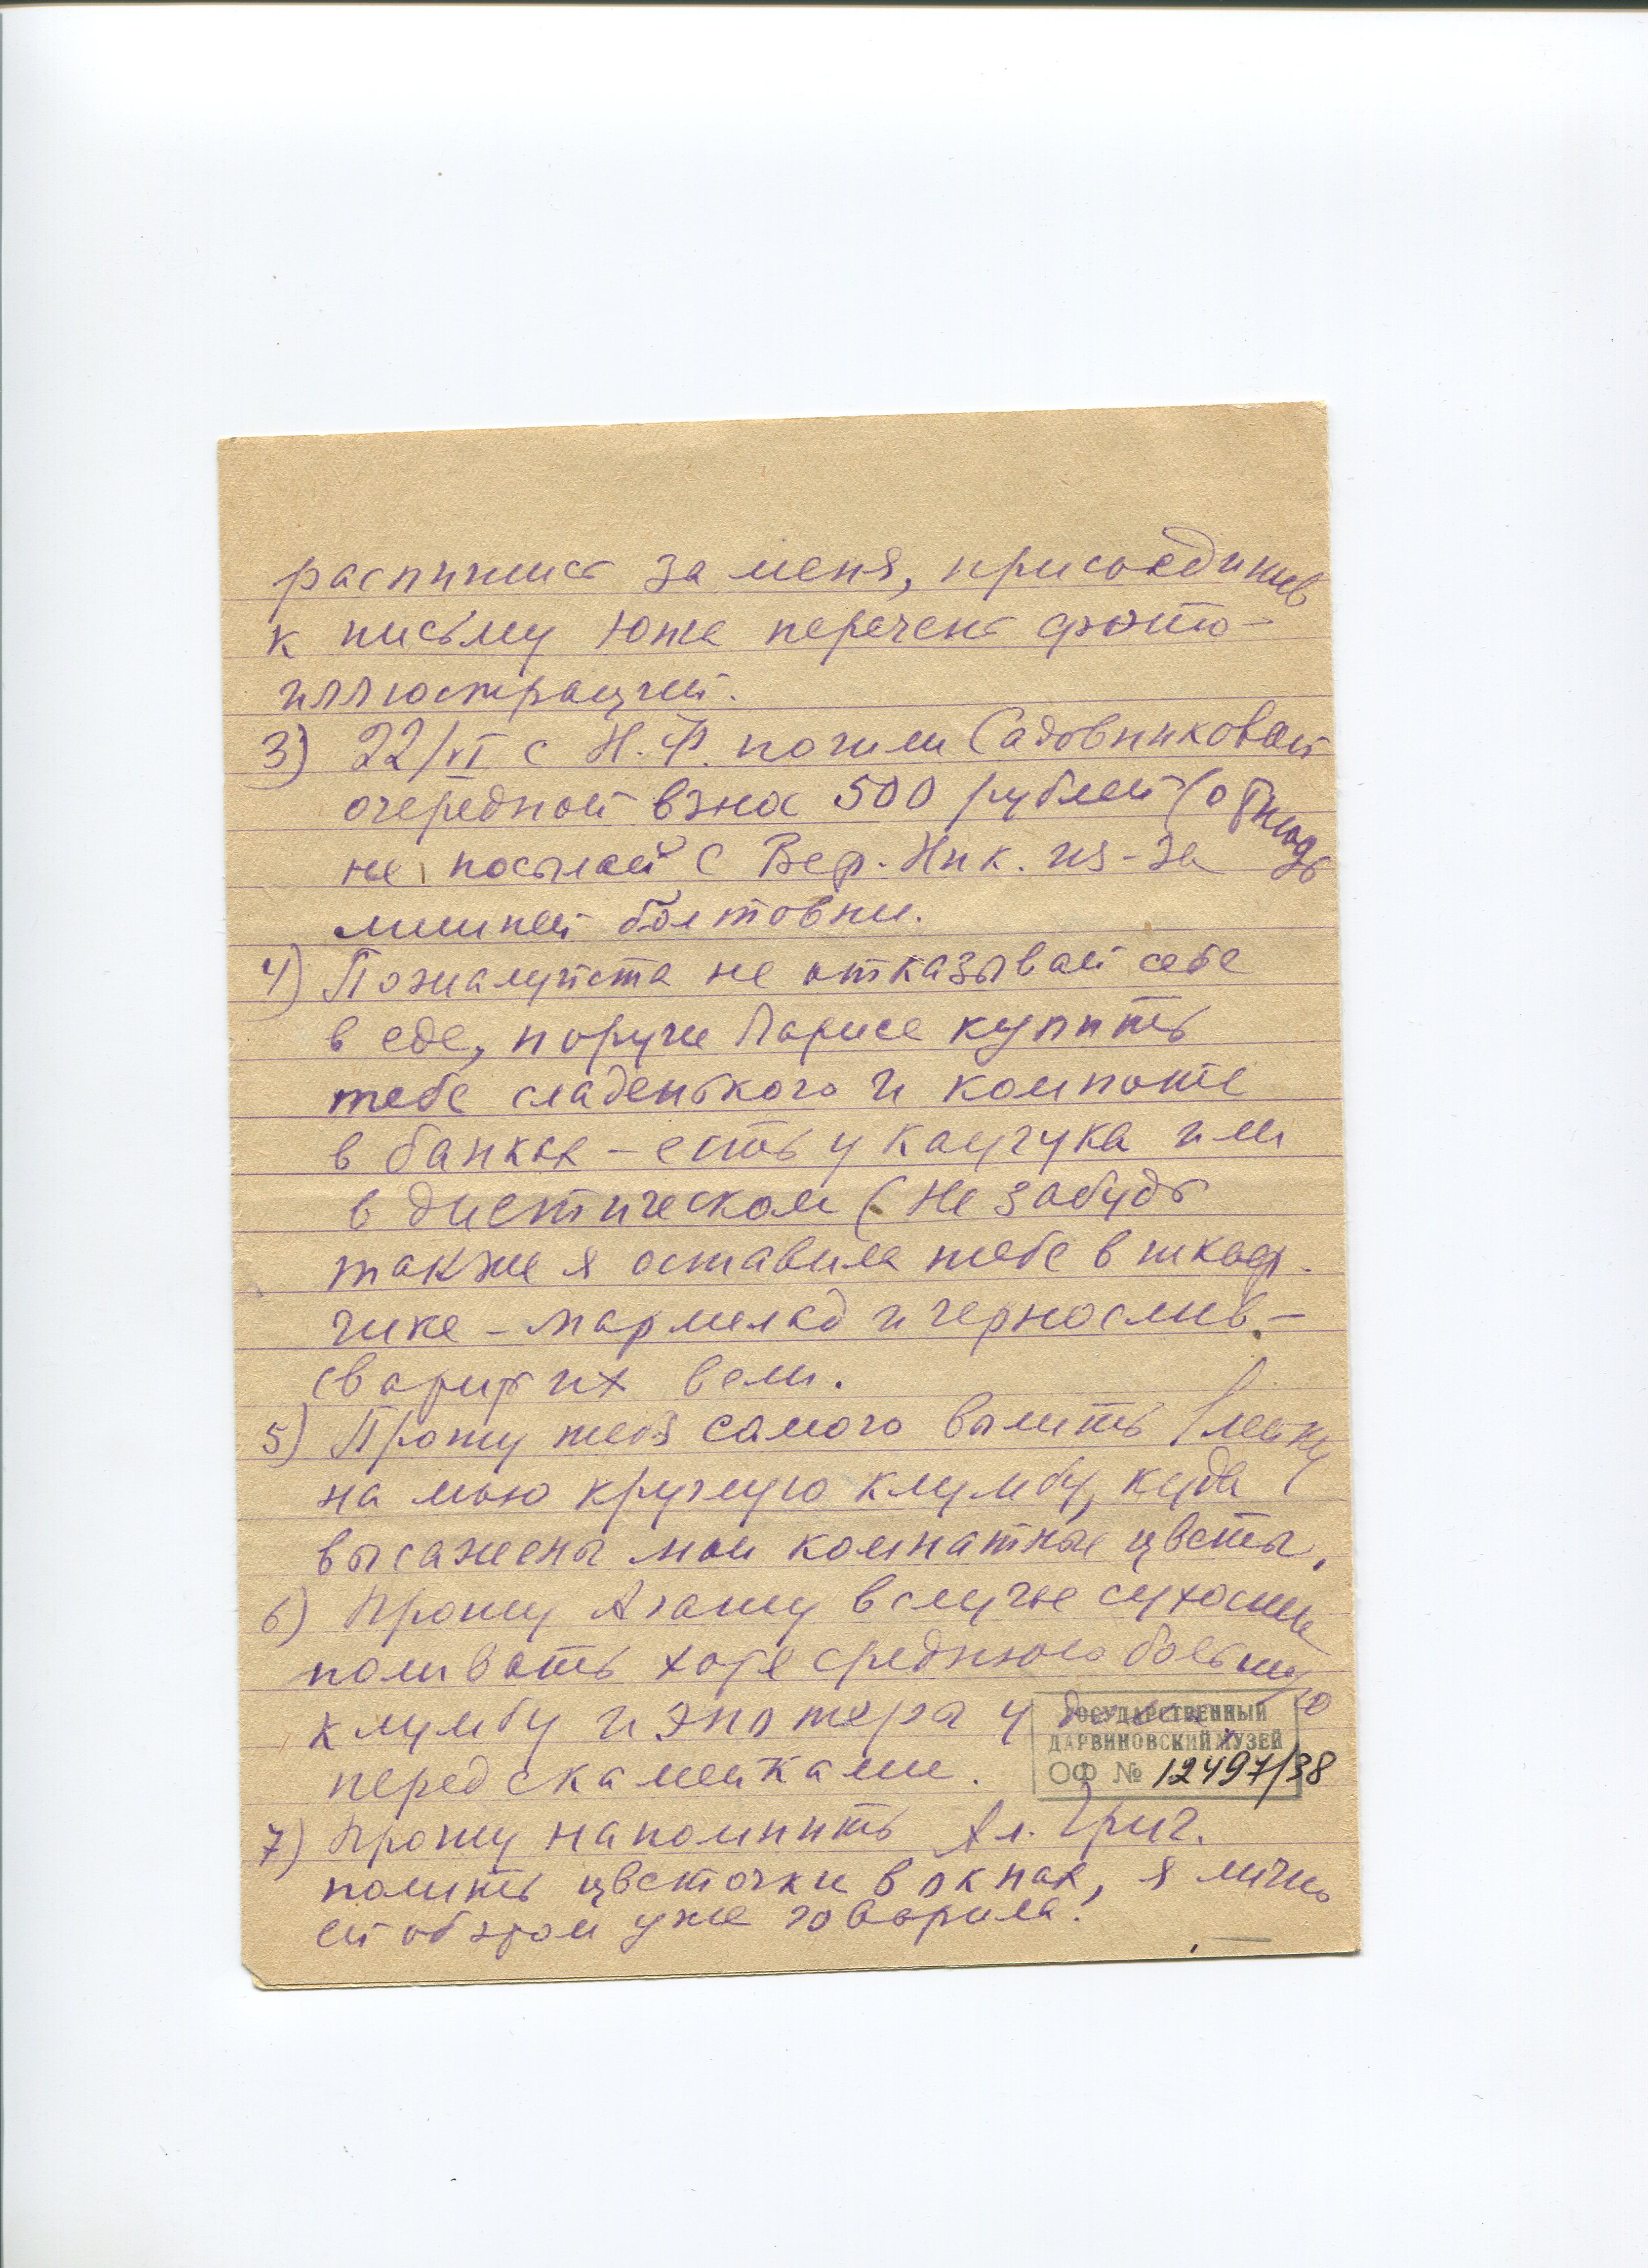 распишись за меня, присоединив
к письму тоже перечень фото-
иллюстраций.
3) 22/VI с Н.Ф. пошли Садовниковой
очередной взнос 500 рублей (отнюдь
не посылай с Вер. Ник. из-за
лишней болтовни.
4) Пожалуйста не отказывай себе
в еде, поручи Ларисе купить
тебе сладенького и компоте
в банках – есть у каучука или
в диетическом (Не забудь
также я оставила тебе в шкаф-
чике – мармелад и чернослив –
сварить их вели.
5) Прошу тебя самого вылить 1 лейку
на мою круглую клумбу, куда
высажены мои комнатные цветы.
6) Прошу Агашу в случае сухости
поливать хотя среднюю большую
клумбу и у
перед скамейками.
7) Прошу напомнить Ал. Григ.
полить цветочки в окнах, я лично
ей об этом уже говорила.
ГОСУДАРСТВЕННЫЙ
ДАРВИНОВСКИЙ МУЗЕЙ
ОФ № 12497/38